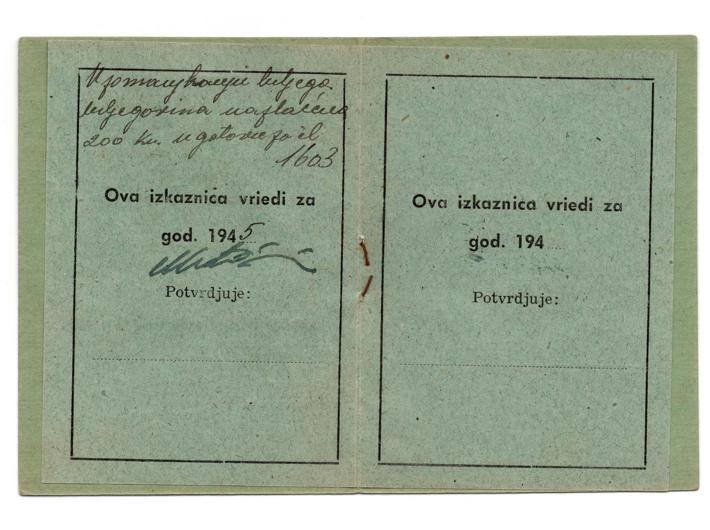 U pomanjkanju biljega
biljegovina naplaćena
200 Kn. u gotovu za čl
1603
Ova izkaznica vriedi za
god. 1945
Potvrdjuje:
Ova izkaznica vriedi za
god. 194
Potvrdjuje: